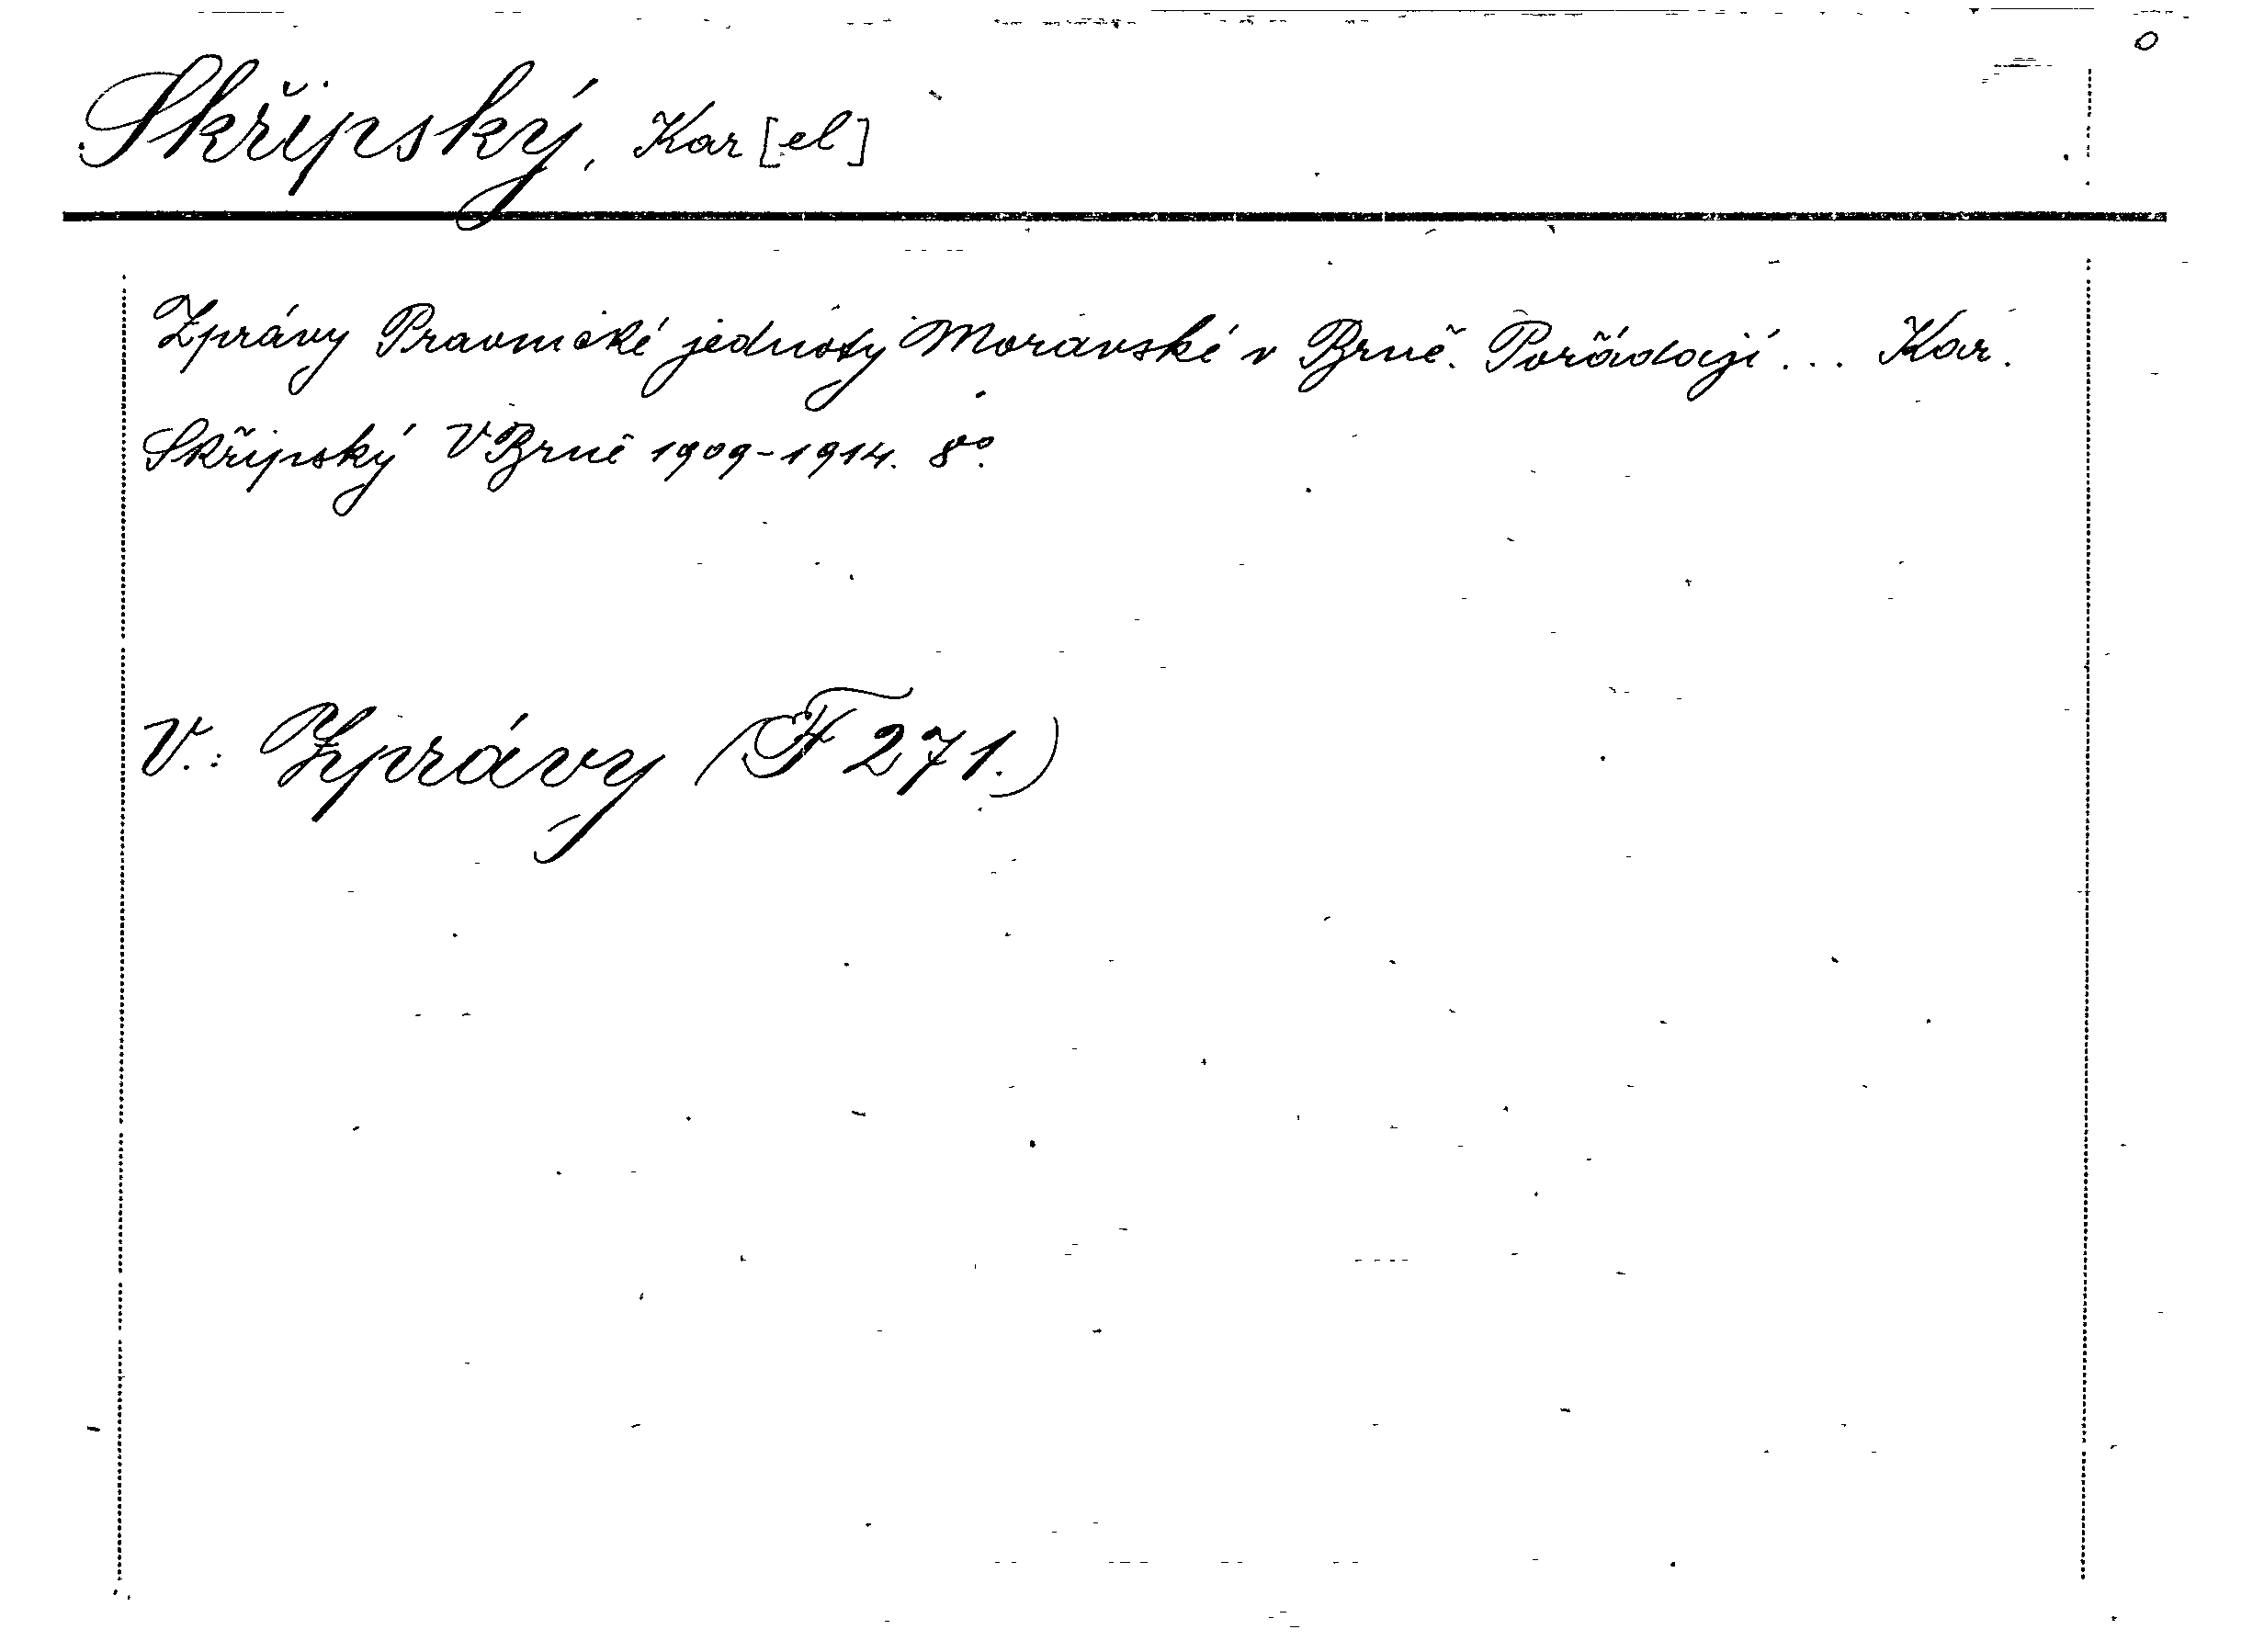 Skřipský, Kar[el]
Zprávy Pravnické jednoty Moravské v Brně. Pořádají... Kar.
Skřipský V Brně 1909-1914. 8º.
V.: Zprávy (F 271.)